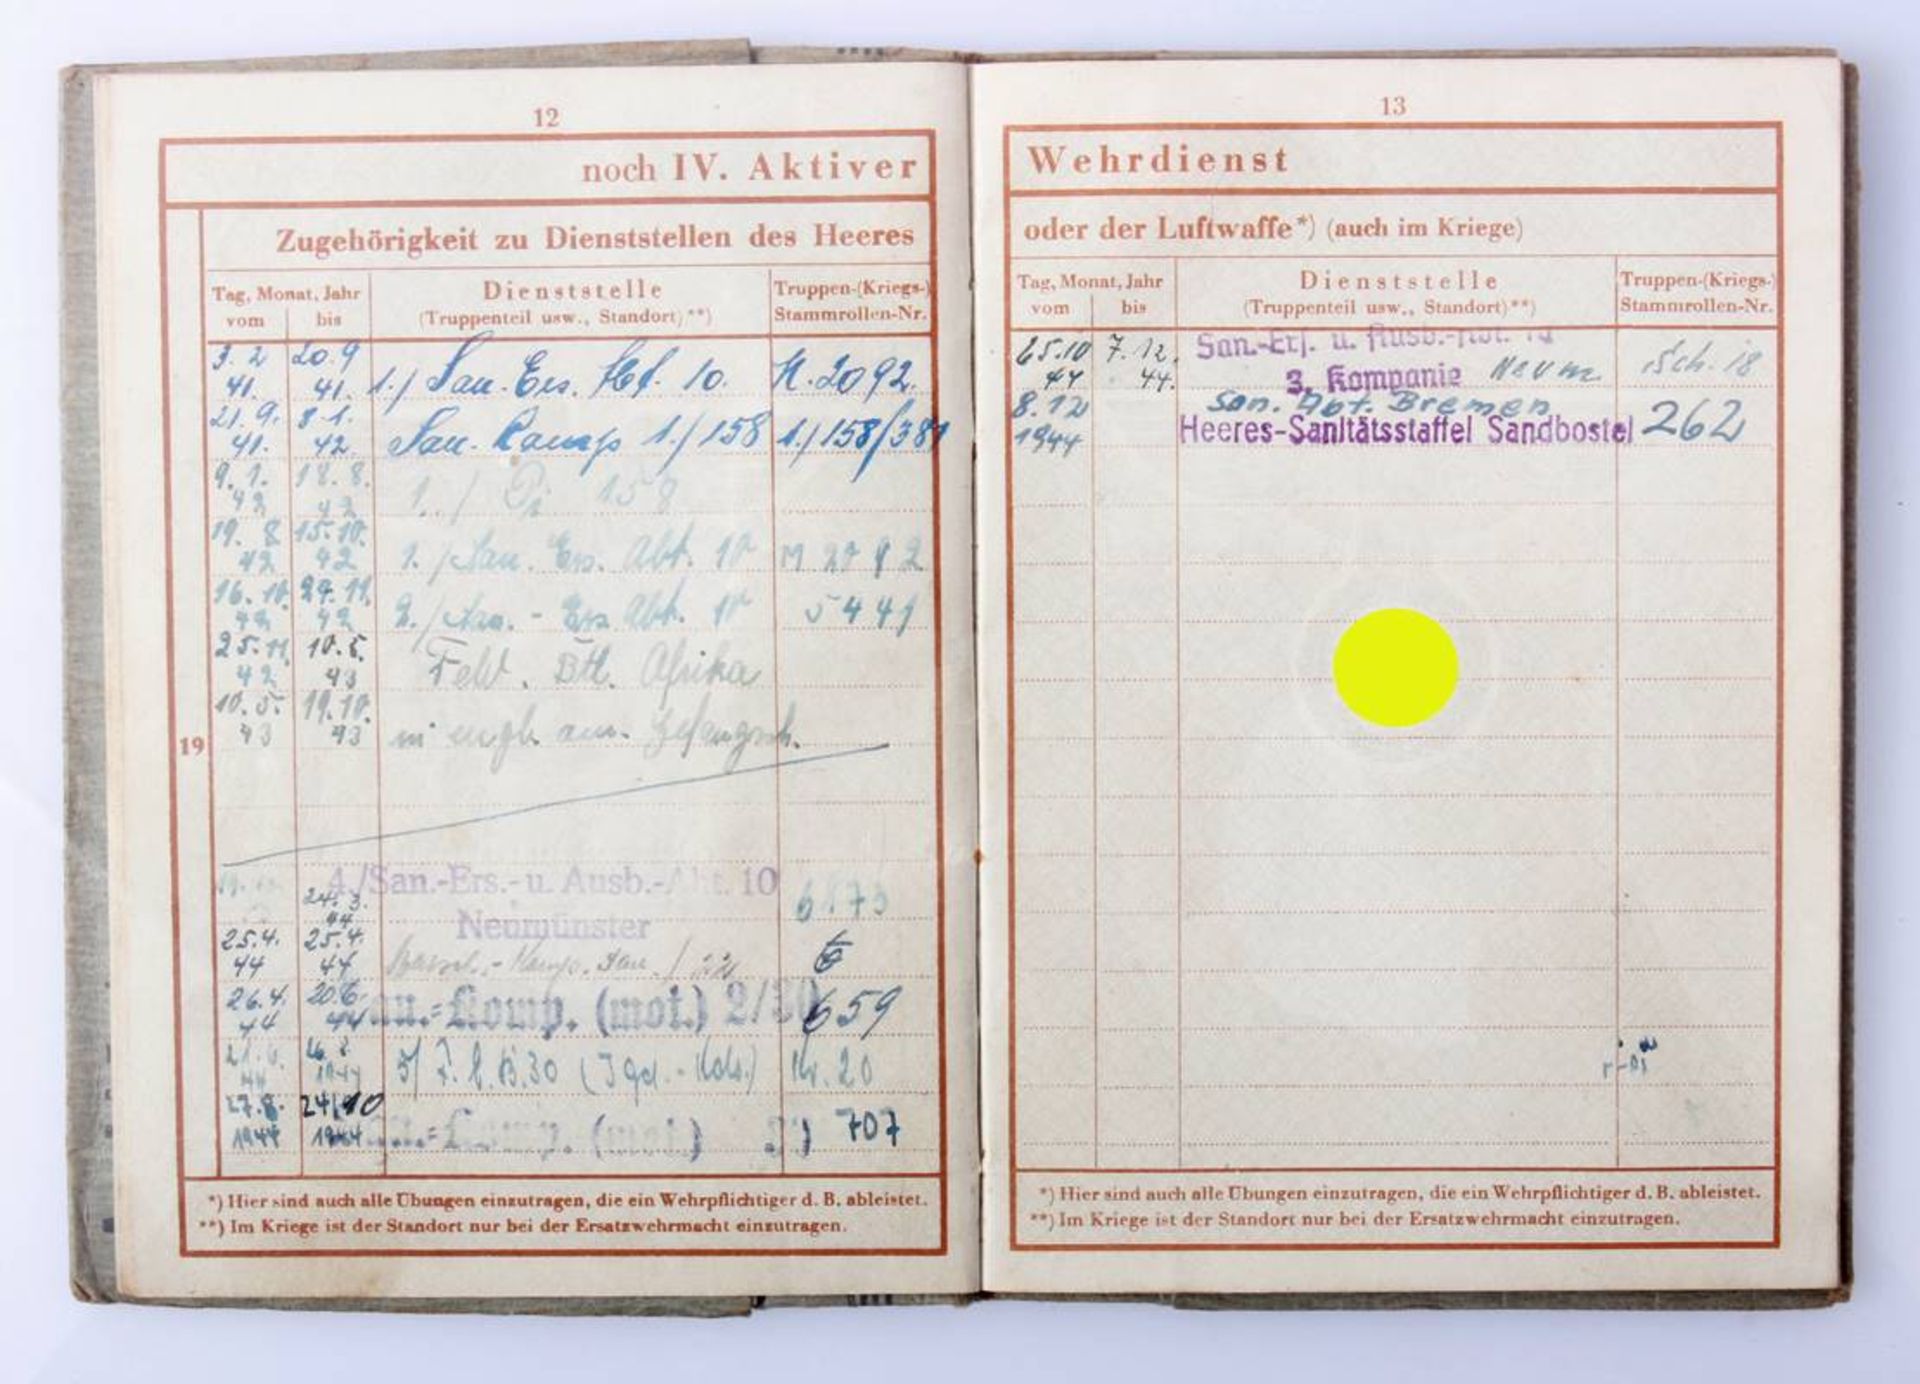 12
noch IV. Aktiver
Zugehörigkeit zu Dienststellen des Heeres
Tag, Monat, Jahr
vom bis
Dienststelle
(Truppenteil usw., Standort)**)
Truppen-(Kriegs-)
Stammrollen-Nr.
3.2 20.9
41. 41. 1./ San. Ers. Abt. 10. N. 2092.
21.9. 8.1.
41. 42. San. Komp 1./158 1./158/381
9.1. 18.8.
42 42 1./ Pi 158
19.8 15.10.
42 42 1./San. Ers. Abt. 10
16.10. 24.11.
42 42 2./San.-Ers Abt. 10 5441
25.11. 10.5.
42 43 Feld. Btl. Afrika
10.5. 19.10.
43 43 in engl. am. Gefangsch.
19
4./San.-Ers.-u. Ausb.-Abt. 10 6873
24.3.
44
Neumünster
25.4. 25.4.
44 44 Marsch.-Komp. San./22 6
26.4. 20.6.
44 44 San.-Komp. (mot.) 2/30 659
21.6.
44 1944 5/ F.E.B.30 Nr. 20
27.8. 24.10
1944 1944 San.-Komp. (mot.) 707
*) Hier sind auch alle Übungen einzutragen, die ein Wehrpflichtiger d. B. ableistet.
**) Im Kriege ist der Standort nur bei der Ersatzwehrmacht einzutragen.
13
Wehrdienst
oder der Luftwaffe*) (auch im Kriege)
Tag, Monat, Jahr
vom bis
Dienststelle
(Truppenteil usw., Standort)**)
Truppen-(Kriegs-)
Stammrollen-Nr.
25.10 7.12. San.-Ers. u. Ausb.-Abt. 10
44 44. 3. Kompanie Neum. Sch. 18
8.12 San. Abt. Bremen
1944 Heeres-Sanitätsstaffel Sandbostel 262
*) Hier sind auch alle Übungen einzutragen, die ein Wehrpflichtiger d. B. ableistet.
**) Im Kriege ist der Standort nur bei der Ersatzwehrmacht einzutragen.